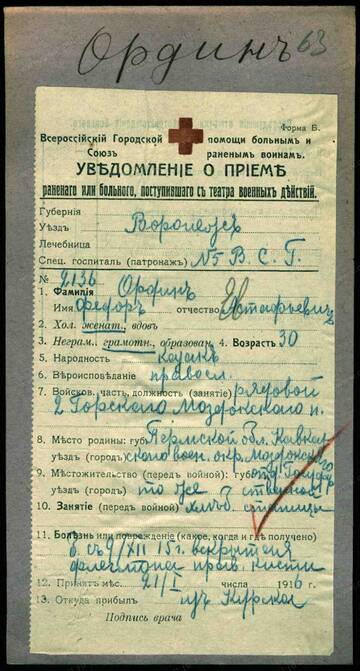 Ординъ 63
Форма Б.
Всероссiйскiй Городской помощи больнымъ и
Союзъ раненымъ воинамъ.
УВѢДОМЛЕНIЕ О ПРIЕМѢ
раненаго или больного, поступившаго съ театра военныхъ дѣйствiй.
Губернiя
Уѣздъ Воронежъ
Лечебница
Спец. госпиталь (патронажъ) №5 В. С. Г.
№ 2136
1. Фамилiя Ординъ
Имя Федоръ отчество Астафьевичъ
2. Хол. женат., вдовъ
3. Неграм., грамотн., образован. 4. Возрастъ 30
5. Народность казакъ
6. Вѣроисповѣданiе правосл.
7. Войсков. часть, должность (занятiе) рядовой
2 Горскаго Моздокскаго п.
8. Мѣсто родины: губ. Терской обл. Кавказ
уѣздъ (город) скаго воен. окр. Моздокскаго
9. Мѣстожительство (передъ войной): губ. отд.
уѣздъ (город) то же
10. Занятiе (передъ войной) хлѣб. станицы
11. Болѣзнь или поврежденiе (какое, когда и гдѣ получено)
б. съ 9/XII 15 г. вскрытая
флегмона прав. кисти
12. Принятъ мѣс. 21/I числа 1916 г.
13. Откуда прибылъ изъ Курска
Подпись врача